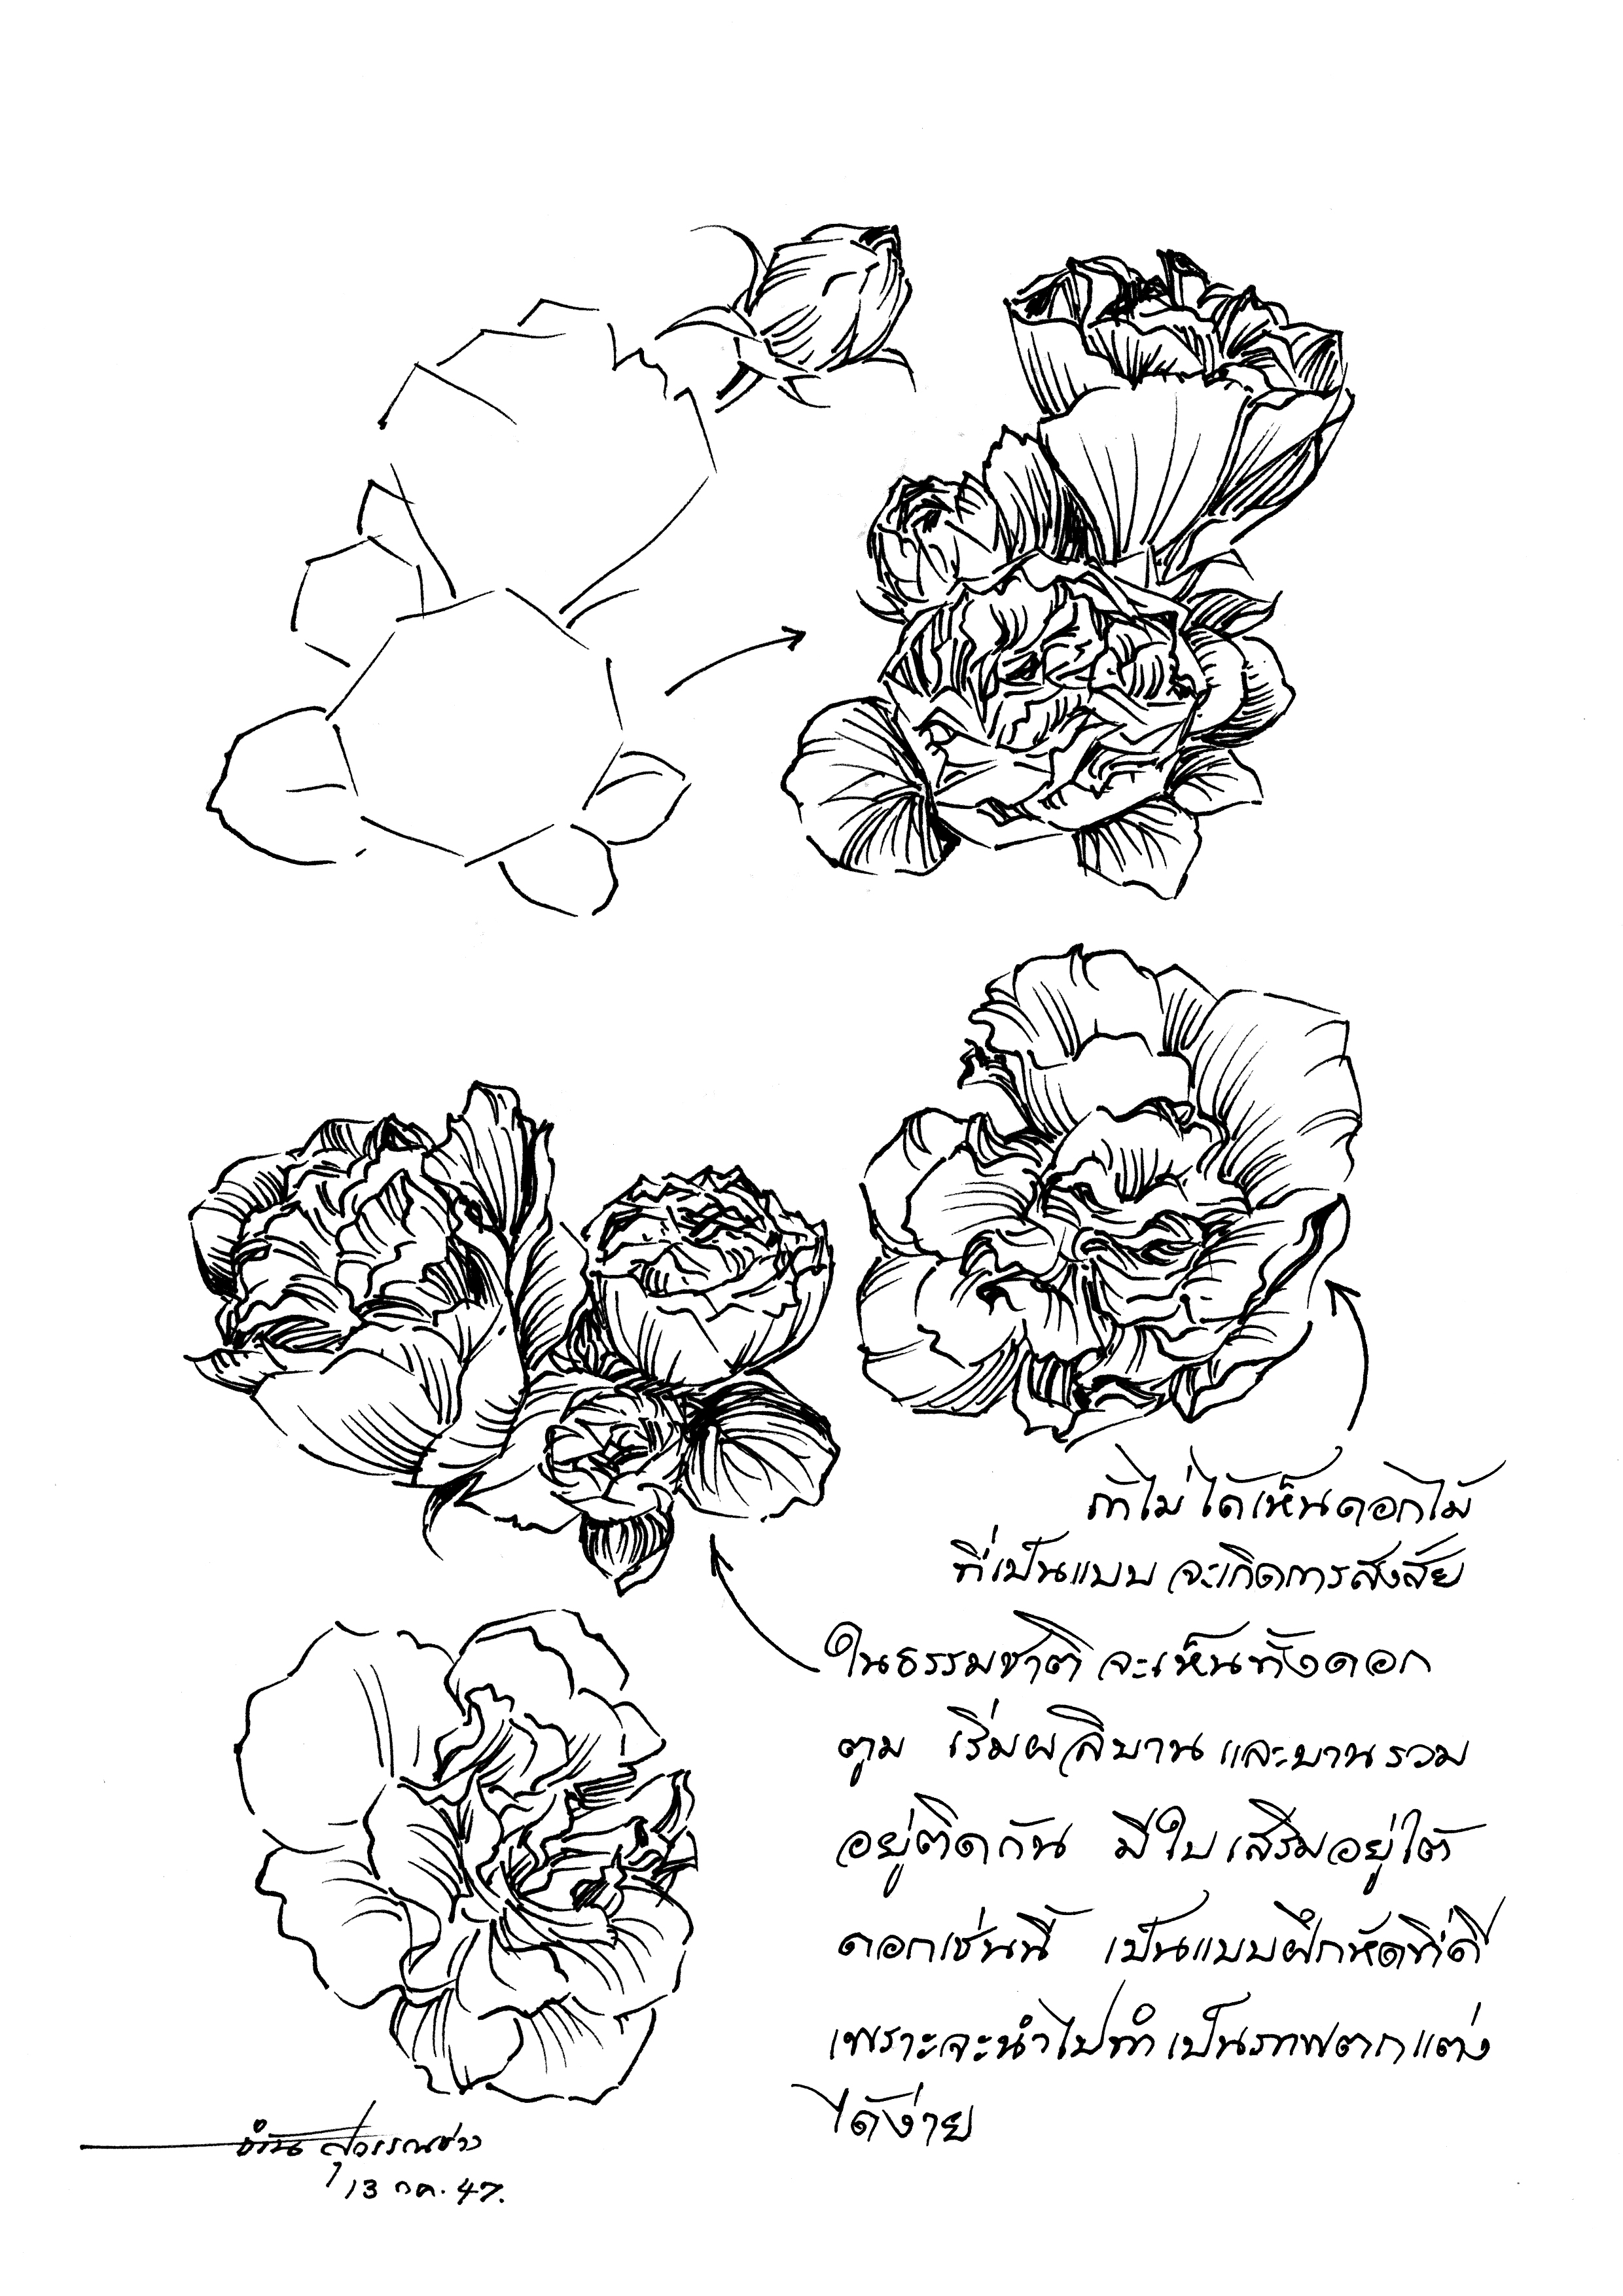 ถ้าไม่ได้เห็นดอกไม้
ที่เป็นแบบ จะเกิดการสงสัย
ในธรรมชาติ จะเห็นทั้งดอก
ตูม เริ่มผลิบาน และบานรวม
อยู่ติดกัน มีใบเสริมอยู่ใต้
ดอกเช่นนี้ เป็นแบบฝึกหัดที่ดี
เพราะจะนำไปทำเป็นภาพตกแต่ง
ได้ง่าย
สุวรรณช่าง
13 กค. 47.